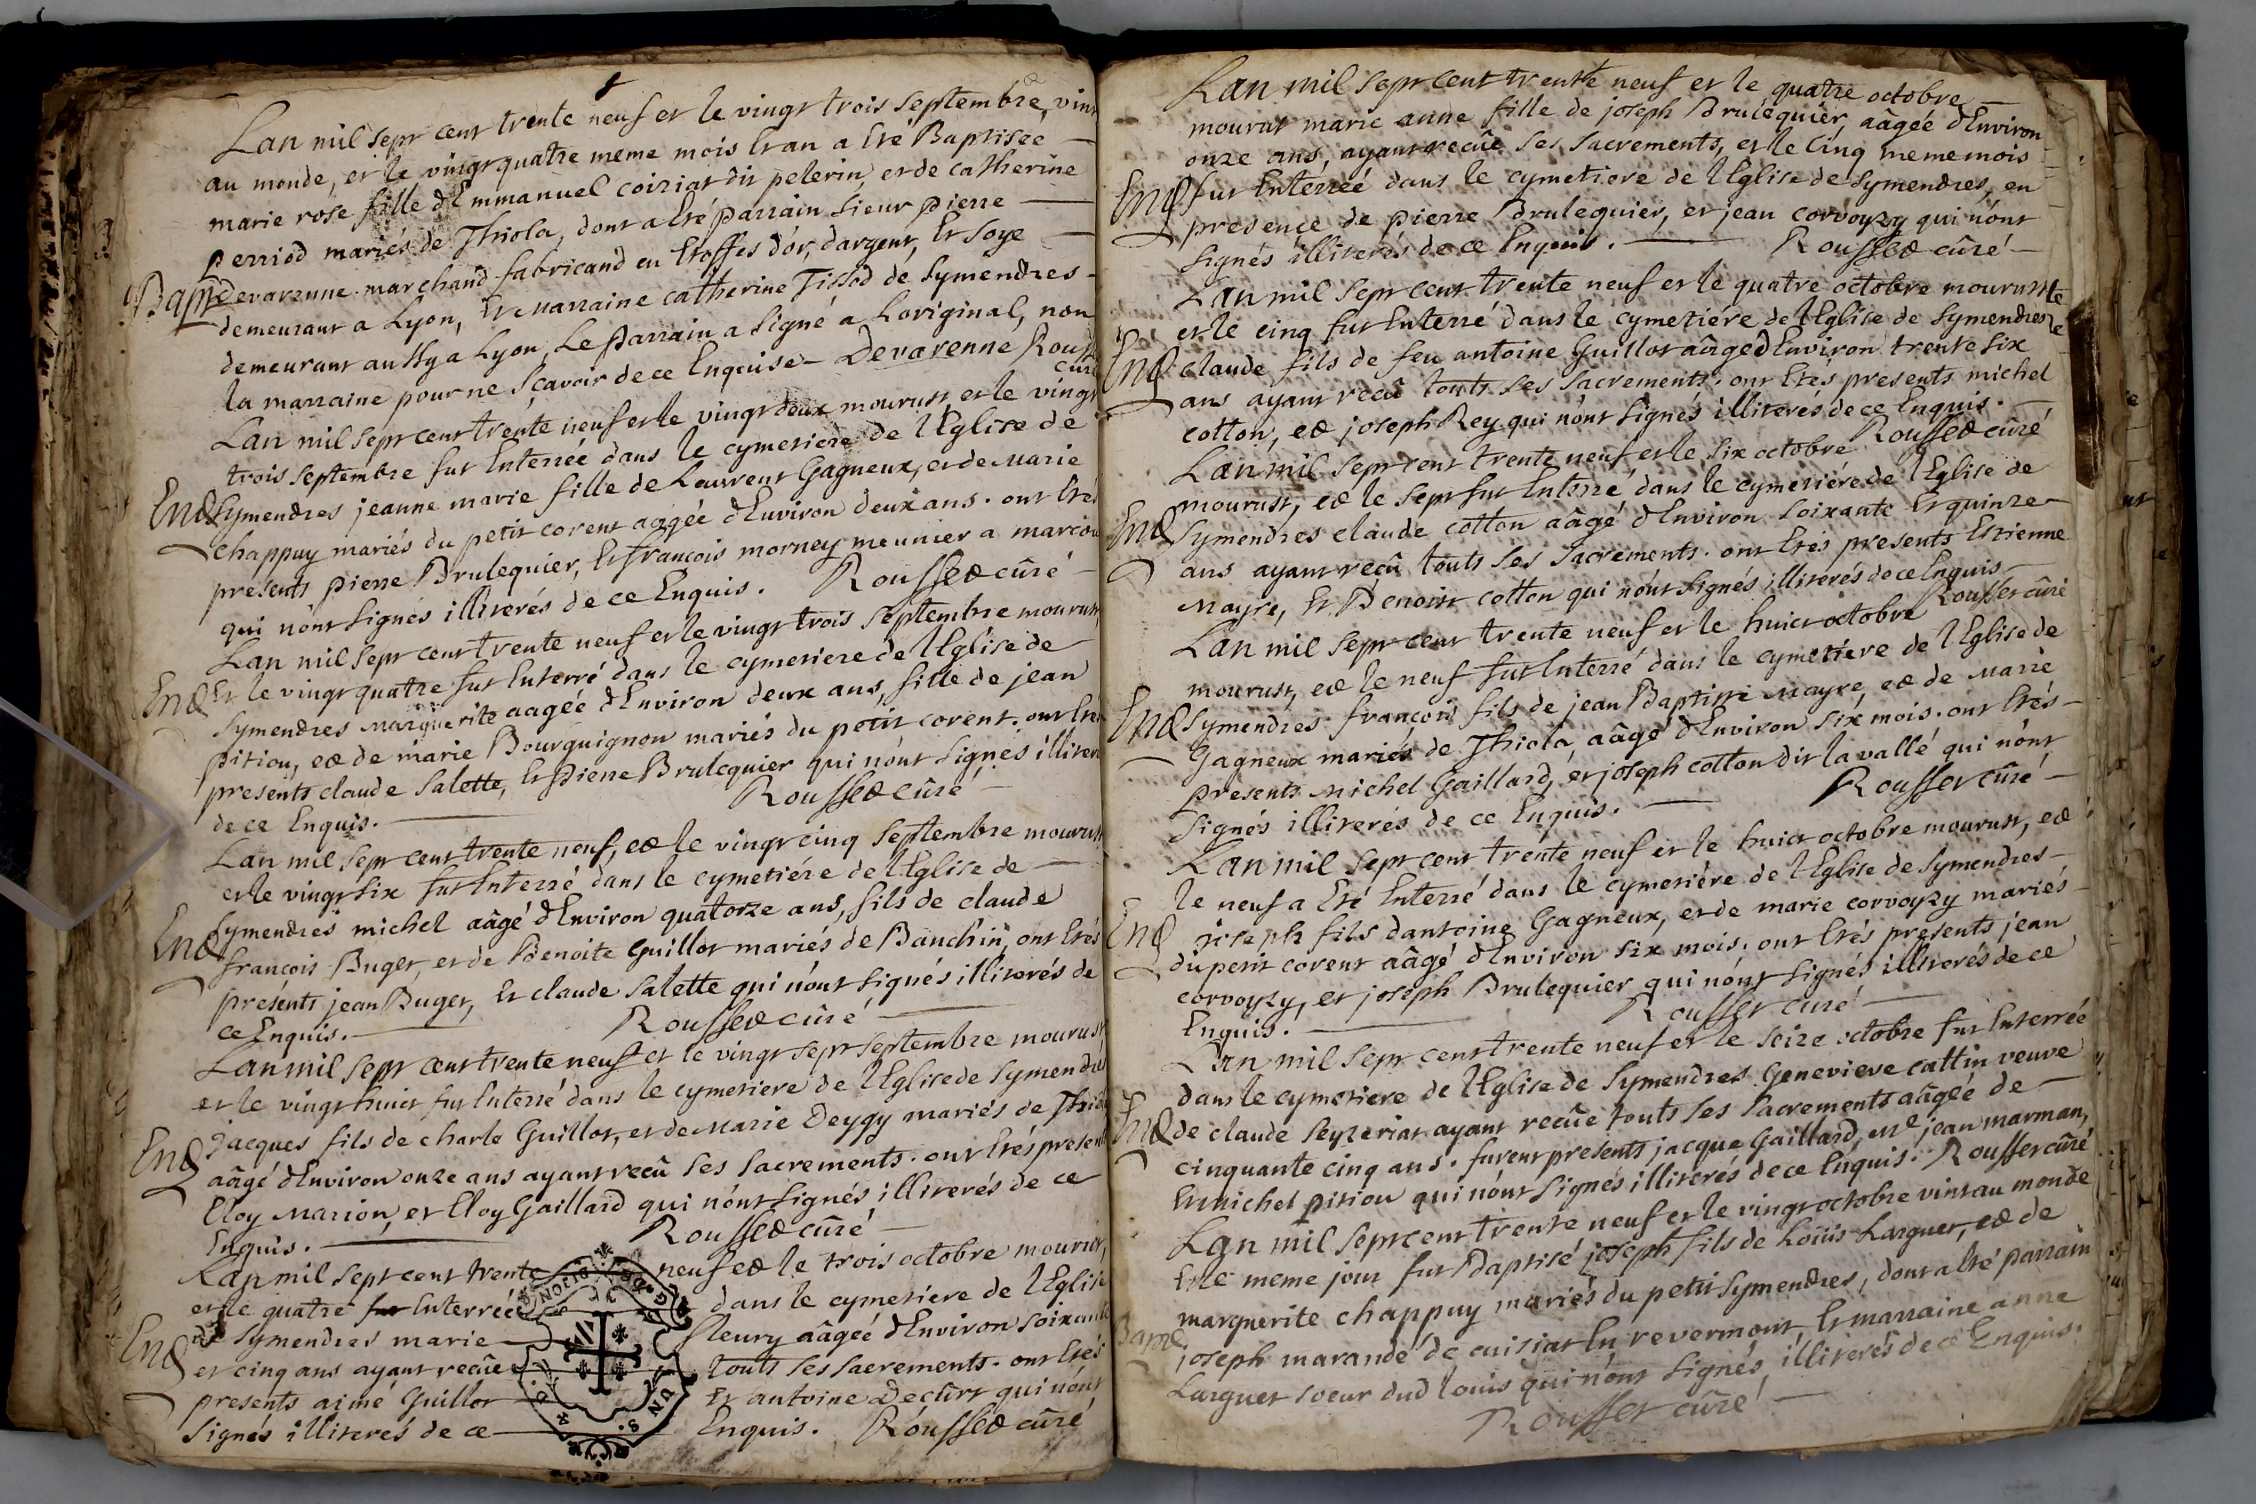 Lan mil sept cent trente neuf et le vingt trois septembre, vint
au monde, et le vingt quatre meme mois et an a été Baptisée
marie rose fille d'Emmanuel coiriat dit pelerin et de catherine
perriod mariés de Thiola, dont a été parrain sieur pierre
Bapt
devarenne marchand fabricand en étoffes d'or, d'argent, et soye
demeurant a Lyon, et marraine catherine Tissod de symendres
demeurant aussy a Lyon, Le parrain a signé a L'original, non
la marraine pour ne sçavoir de ce Enquise - Devarenne Rousset
curé
Lan mil sept cent trente neuf et le vingt deux mourust, et le vingt
trois septembre fut Enterrée dans le cymetiere de l'Eglise de
End
symendres jeanne marie fille de Laurent Gagneux, et de Marie
chappuy mariés du petit corent aâgée d'Environ deux ans. ont étés
presents pierre Brulequier, et françois morney meunier a marcou
qui n'ont signés illiterés de ce Enquis. Rousset cûré
Lan mil sept cent trente neuf et le vingt trois septembre mourust,
End
et le vingt quatre fut Enterré dans le cymetiere de l'Eglise de
symendres Marguerite aagée d'Environ deux ans, fille de jean
pition, et de marie Bourguignon mariés du petit corent. ont étés
presents claude Salette, et pierre Brulequier qui n'ont signés illiterés
de ce Enquis. Rousset cûré
Lan mil sept cent trente neuf, et le vingt cinq septembre mourust
et le vingt six fut Enterré dans le cymetiére de l'Eglise de
End
symendres michel aâgé d'Environ quatorze ans, fils de claude
françois Buget, et de Benoite Guillot mariés de Banchin, ont étés
présents jean Buget, et claude Salette qui n'ont signés illiterés de
ce Enquis. Rousset cûré
Lan mil sept cent trente neuf et le vingt sept septembre mourust,
et le vingt huict fut Enterré dans le cymetiere de l'Eglise de Symendres
End
jacques fils de charle Guillot, et de Marie Deygy mariés de Thiola
aâgé d'Environ onze ans ayant recû ses sacrements. ont étés presents
Eloy Marion, et Eloy Gaillard qui n'ont signés illiterés de ce
Enquis. Rousset cûré
Lan mil sept cent trente neuf et le trois octobre mourut,
et le quatre fut Enterrée dans le cymetiere de l'Eglise
End
de symendres marie fleury aâgée d'Environ soixante
et cinq ans ayant recûe touts ses sacrements. ont étés
presents aimé Guillot et antoine Decûrt qui n'ont
signés illiterés de ce Enquis. Rousset cûré
Lan mil sept cent trente neuf et le quatre octobre
mourut marie anne fille de joseph Brulequier aâgée d'Environ
onze ans, ayant recûe ses sacrements, et le cinq meme mois
End
fut Enterrée dans le cymetiere de l'Eglise de symendres, en
presence de pierre Brulequier, et jean corvoyzy qui n'ont
signés illiterés de ce Enquis. Rousset cûré
Lan mil sept cent trente neuf et le quatre octobre mourust
et le cinq fut Enterré dans le cymetiére de l'Eglise de symendres
End
claude fils de feu antoine Guillot aâgé d'Environ trente six
ans ayant recû touts ses sacrements. ont étés presents michel
cotton, et joseph Rey qui n'ont signés illiterés de ce Enquis.
Rousset cûré
Lan mil sept cent trente neuf et le six octobre
mourust, et le sept fut Enterré dans le cymetiére de l'Eglise de
End
symendres claude cotton aâgé d'Environ soixante et quinze
ans ayant recû touts ses sacrements. ont étés presents Etienne
Mayre, et Benoist cotton qui n'ont signés illiterés de ce Enquis
Rousset cûré
Lan mil sept cent trente neuf et le huict octobre
mourust, et le neuf fut Enterré dans le cymetiere de l'Eglise de
End
symendres françois fils de jean Baptiste Mayre, et de Marie
Gagneux mariés de Thiola, aâgé d'Environ six mois. ont étés
presents Michel Gaillard, et joseph cotton dit la vallé qui n'ont
signés illiterés de ce Enquis. Rousset cûré
Lan mil sept cent trente neuf et le huict octobre mourust, et
le neuf a été Enterré dans le cymetiére de l'Eglise de symendres
End
joseph fils d'antoine Gagneux, et de marie corvoyzy mariés
du petit corent aâgé d'Environ six mois. ont étés presents jean
corvoyzy, et joseph Brulequier qui n'ont signés illiterés de ce
Enquis. Rousset curé
Lan mil sept cent trente neuf et le seize octobre fut Enterrée
dans le cymetiere de l'Eglise de Symendres Genevieve cattin veuve
End
de claude Seyzeriat ayant recûe touts ses sacrements aâgée de
cinquante cinq ans. furent presents jacque Gaillard, jean marman,
et michel pition qui n'ont signés illiterés de ce Enquis. Rousset cûré
Lan mil sept cent trente neuf et le vingt octobre vint au monde
et le meme jour fut Baptisé joseph fils de Loüis Larguet, et de
marguerite chappuy mariés du petit symendres, dont a été parrain
Bapt
joseph marande de cuisiat En revermont et marraine anne
Larguet soeur dud Louis qui n'ont signés illiterés de ce Enquis.
Rousset cûré